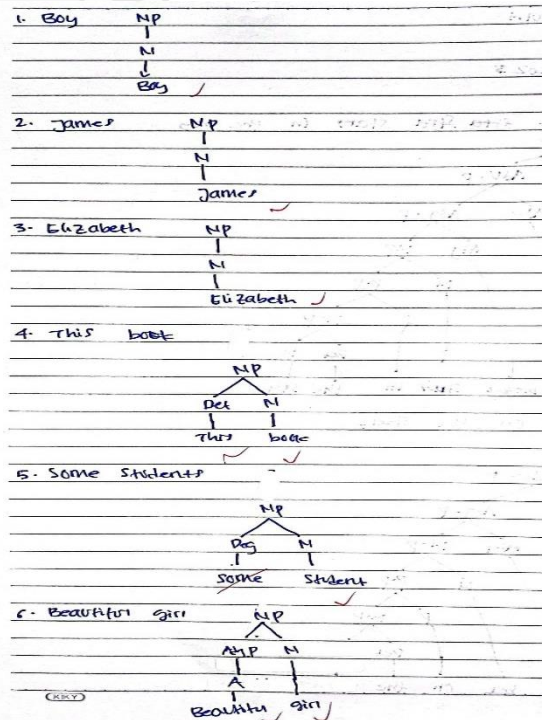 1. Boy NP
N
Boy
2. James NP
N
James
3- Elizabeth NP
N
Elizabeth
4. This book
NP
Det N
This book
5. Some Students
NP
Deg N
Some Student
6. Beautiful girl NP
AdjP N
A
Beautiful girl
KKY